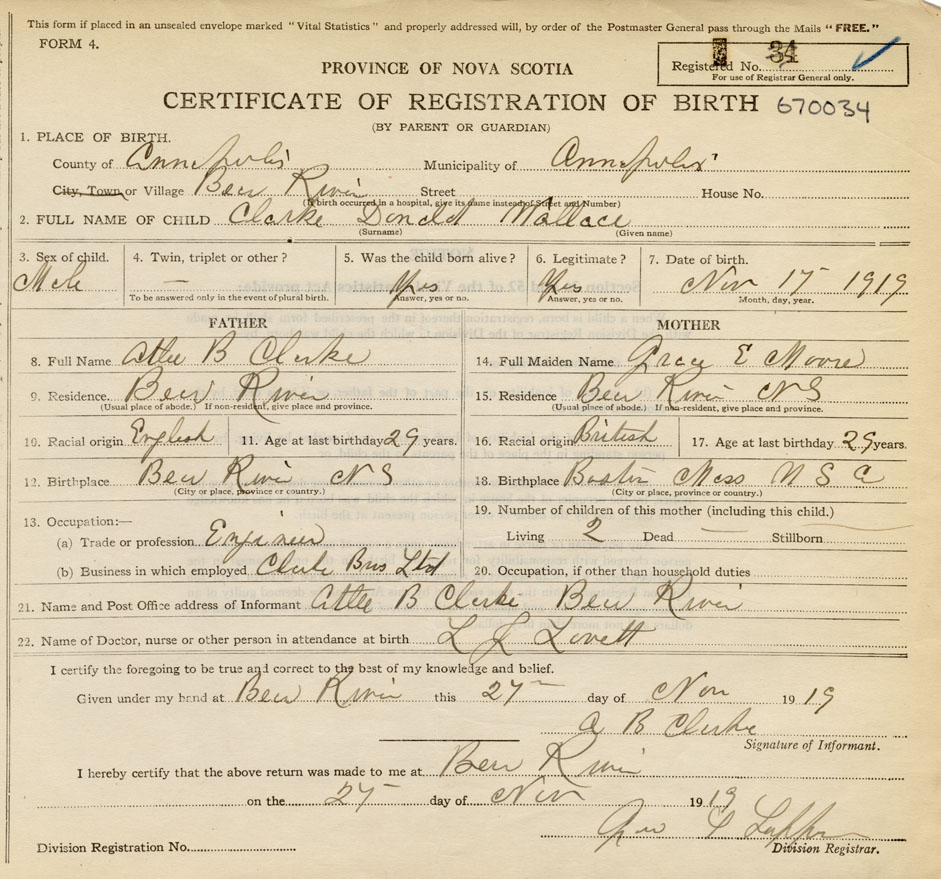 This form if placed in an unsealed envelope marked "Vital Statistics" and properly addressed will, by order of the Postmaster General pass through the Mails "FREE."
FORM 4.
Registered No. 34
For use of Registrar General only.
PROVINCE OF NOVA SCOTIA
CERTIFICATE OF REGISTRATION OF BIRTH 670034
(BY PARENT OR GUARDIAN)
1. PLACE OF BIRTH.
County of Annapolis Municipality of Annapolis
City, Town or Village Bear River Street House No.
(If birth occurred in a hospital, give its name instead of Street and Number)
2. FULL NAME OF CHILD Clarke Donald Wallace
(Surname) (Given name)
3. Sex of child. 4. Twin, triplet or other? 5. Was the child born alive? 6. Legitimate? 7. Date of birth.
Male — Yes Yes Nov 17 1919
To be answered only in the event of plural birth. Answer, yes or no. Answer, yes or no. Month, day, year.
FATHER MOTHER
8. Full Name B Clarke 14. Full Maiden Name Grace E Moore
9. Residence. Bear River 15. Residence Bear River N S
(Usual place of abode.) If non-resident, give place and province. (Usual place of abode.) If non-resident, give place and province.
10. Racial origin English 11. Age at last birthday 29 years. 16. Racial origin British 17. Age at last birthday 29 years.
12. Birthplace Bear River N S 18. Birthplace Boston Mass U S A
(City or place, province or country.) (City or place, province or country.)
13. Occupation:— 19. Number of children of this mother (including this child.)
(a) Trade or profession Engineer Living 2 Dead — Stillborn
(b) Business in which employed Clarke Bros Ltd 20. Occupation, if other than household duties
21. Name and Post Office address of Informant B Clarke Bear River
22. Name of Doctor, nurse or other person in attendance at birth L J Lovett
I certify the foregoing to be true and correct to the best of my knowledge and belief.
Given under my hand at Bear River this 27 day of Nov 19 19
A B Clarke
Signature of Informant.
I hereby certify that the above return was made to me at Bear River
on the 27 day of Nov 19 19
Division Registration No. Division Registrar.